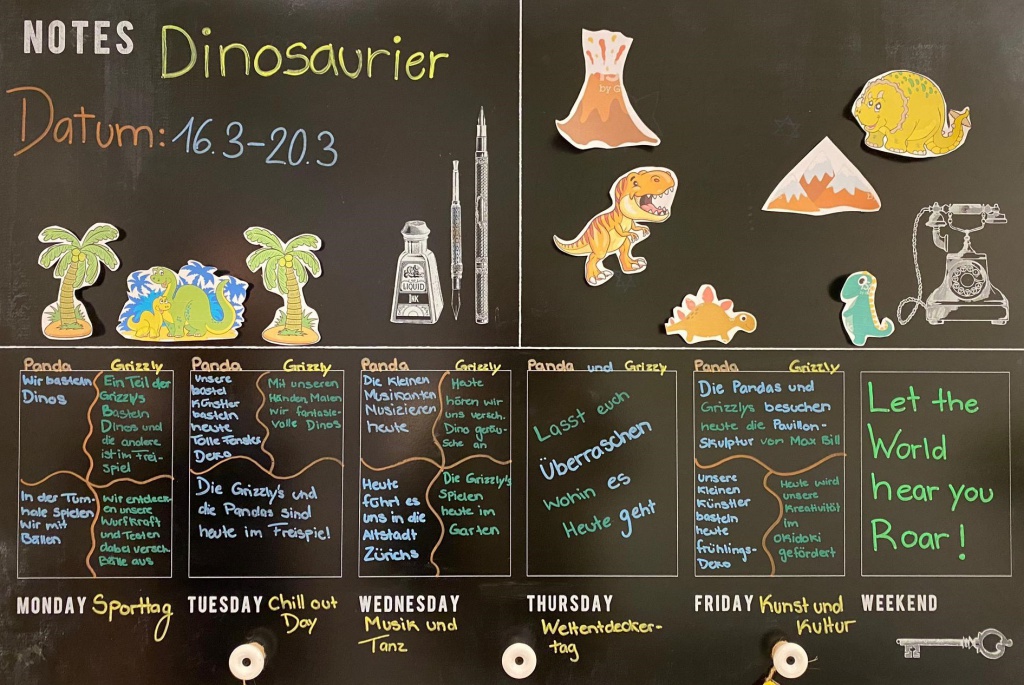 NOTES Dinosaurier
Datum: 16.3-20.3
by G
LIQUID
INK
Panda Grizzly
Wir basteln
Dinos
Ein Teil der
Grizzly's
Basteln
Dinos und
die andere
ist im Frei-
spiel
In der Turn-
hale Spielen
Wir mit
Bällen
Wir entdeck-
en unsere
Wurfkraft
und Testen
dabei versch.
Bälle aus
MONDAY Sporttag
Panda Grizzly
Unsere
bastel
Künstler
basteln
heute
Tolle Fenster
Deko
Mit unseren
Händen Malen
wir fantasie-
volle Dinos
Die Grizzly's und
die Pandas sind
heute im Freispiel
TUESDAY Chill out
Day
Panda Grizzly
Die Kleinen
Musikanten
Musizieren
heute
Heute
hören wir
uns versch.
Dino geräu-
sche an
Heute
führt es
uns in die
Altstadt
Zürichs
Die Grizzly's
Spielen
heute im
Garten
WEDNESDAY
Musik und
Tanz
Panda und Grizzly
Lasst euch
Überraschen
wohin es
Heute geht
THURSDAY
Weltentdecker-
tag
Panda Grizzly
Die Pandas und
Grizzly's besuchen
heute die Pavillon-
Skulptur von Max Bill
unsere
Kleinen
Künstler
basteln
heute
frühlings-
Deko
Heute wird
unsere
Kreativität
im
Okidoki
gefördert
FRIDAY Kunst und
Kultur
Let the
World
hear you
Roar!
WEEKEND